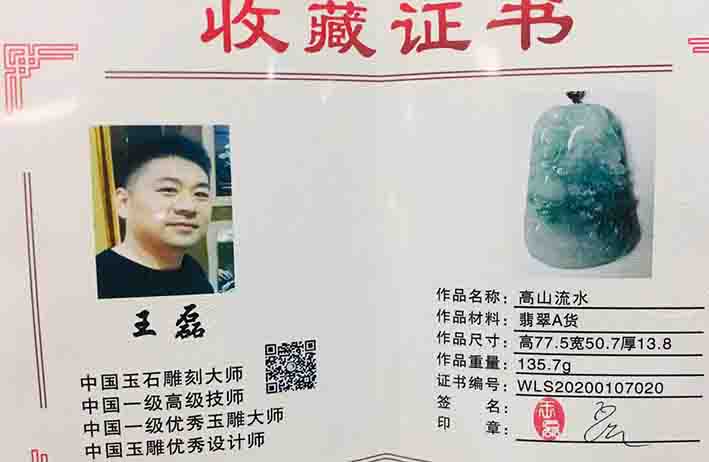 收藏证书
王磊
中国玉石雕刻大师
中国一级高级技师
中国一级优秀玉雕大师
中国玉雕优秀设计师
作品名称：高山流水
作品材料：翡翠A货
作品尺寸：高77.5宽50.7厚13.8
作品重量：135.7g
证书编号：WLS20200107020
签名：
印章：